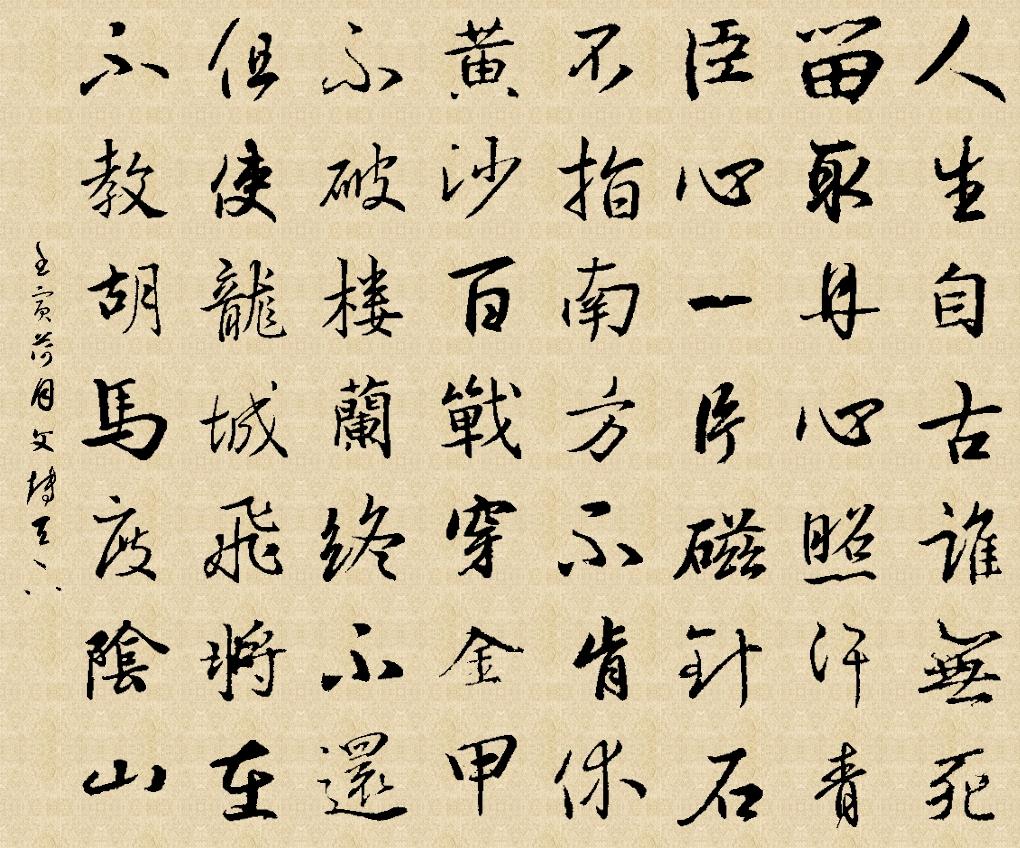 人生自古誰無死
留取丹心照汗青
臣心一片磁針石
不指南方不肯休
黃沙百戰穿金甲
不破樓蘭終不還
但使龍城飛將在
不教胡馬度陰山
壬寅荷月文博